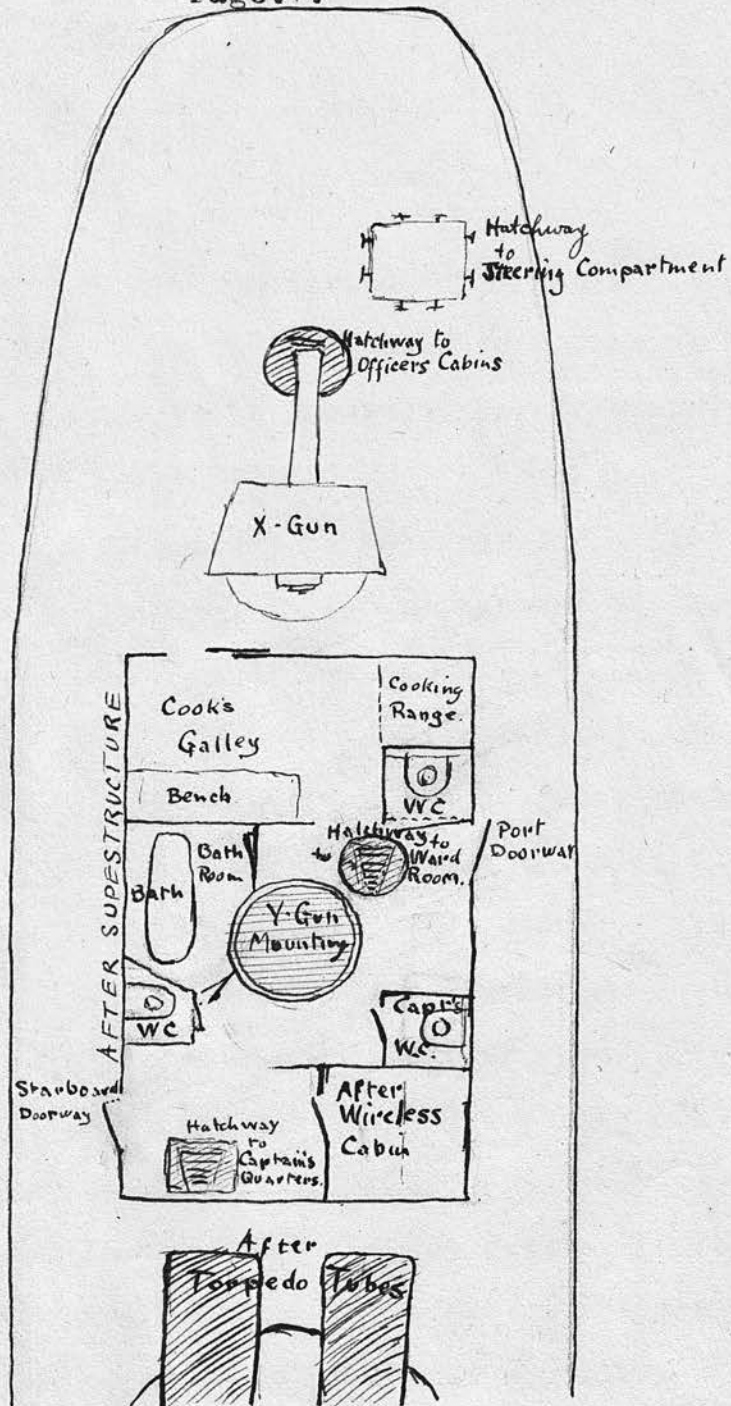 Hatchway
to
Steering Compartment
Hatchway to
Officers Cabins
X-Gun
Cook's
Galley
Cooking
Range.
Bench
WC
AFTER SUPESTRUCTURE
Bath
Room
Bath
Hatchway
to
Ward
Room.
Port
Doorway
Y-Gun
Mounting
WC
Capt's
W.C.
Starboard
Doorway
After
Wireless
Cabin
Hatchway
to
Captain's
Quarters.
After
Torpedo Tubes